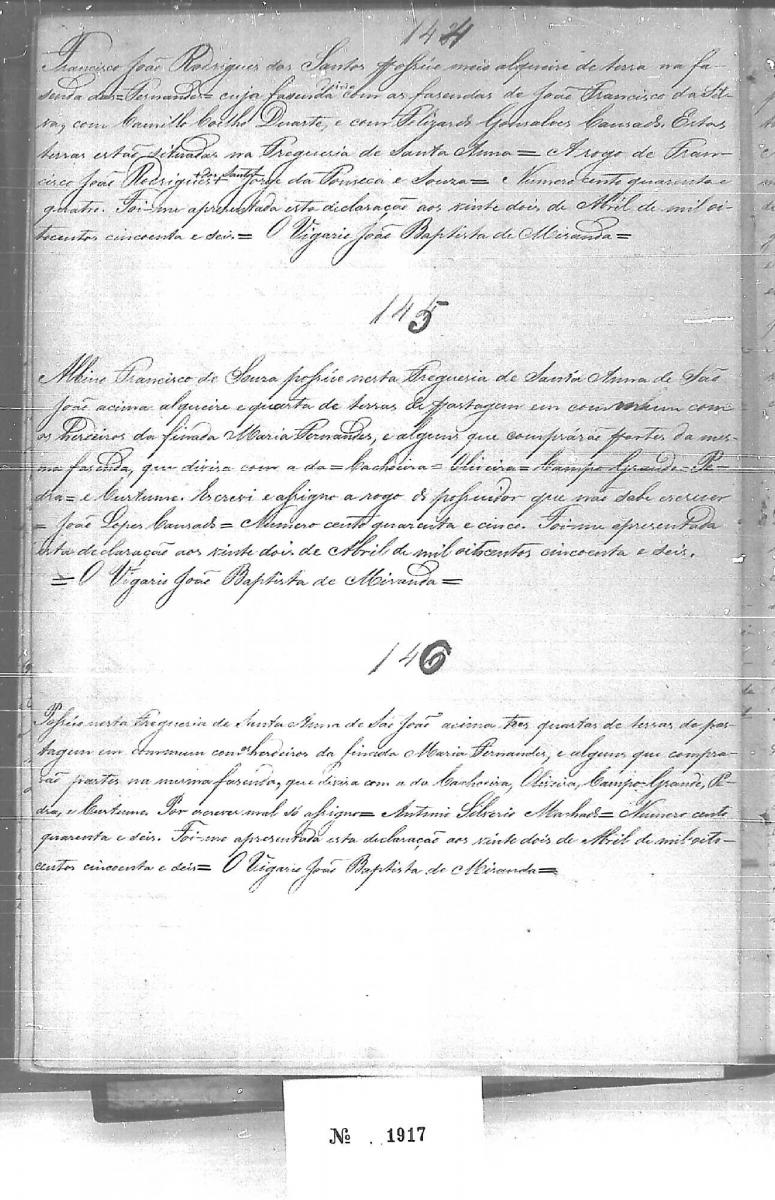 144
Francisco João Rodrigues dos Santos possúe meio alqueire de terra na fa-
senda das = Fernandes = cuja fasenda com as fasendas de João Francisco da Sil-
va, com Camillo Coelho Duarte, e com Gonsalves Cansado. Estas
terras estão situadas na Freguesia de Santa Anna = A rogo de Fran-
cisco João Rodrigues dos Santos Jorge da Fonseca e Souza = Numero cento quarenta e
quatro. Foi-me apresentada esta declaração aos vinte dois de Abril de mil oi-
tocentos cincoenta e seis = O Vigario João Baptista de Miranda =
145
Albino Francisco de Souza possúe nesta Freguesia de Santa Anna de São
João acima alqueire e quarta de terras de pastagem em commum com
os herdeiros da finada Maria Fernandes, e alguns que comprárão partes da mes-
ma fasenda, que divisa com a da = Cachoeira = Oliveira = Campo Grande = Pe-
dra = e Curtume. Escrevi e assigno a rogo do possuidor que não sabe escrever
= João Lopes Cansado = Numero cento quarenta e cinco. Foi-me apresentada
esta declaração aos vinte dois de Abril de mil oitocentos cincoenta e seis.
= O Vigario João Baptista de Miranda =
146
Possúo nesta Freguesia de Santa Anna de São João acima tres quartas de terras de pas-
tagem em commum com os herdeiros da finada Maria Fernandes, e alguns que compra-
rão partes na mesma fasenda, que divisa com a da Cachoeira, Oliveira, Campo-Grande, Pe-
dra, e Curtume. Por escrever mal só assigno = Antonio Silverio Machado = Numero cento
quarenta e seis. Foi-me apresentada esta declaração aos vinte dois de Abril de mil oito-
centos cincoenta e seis = O Vigario João Baptista de Miranda =
№ 1917